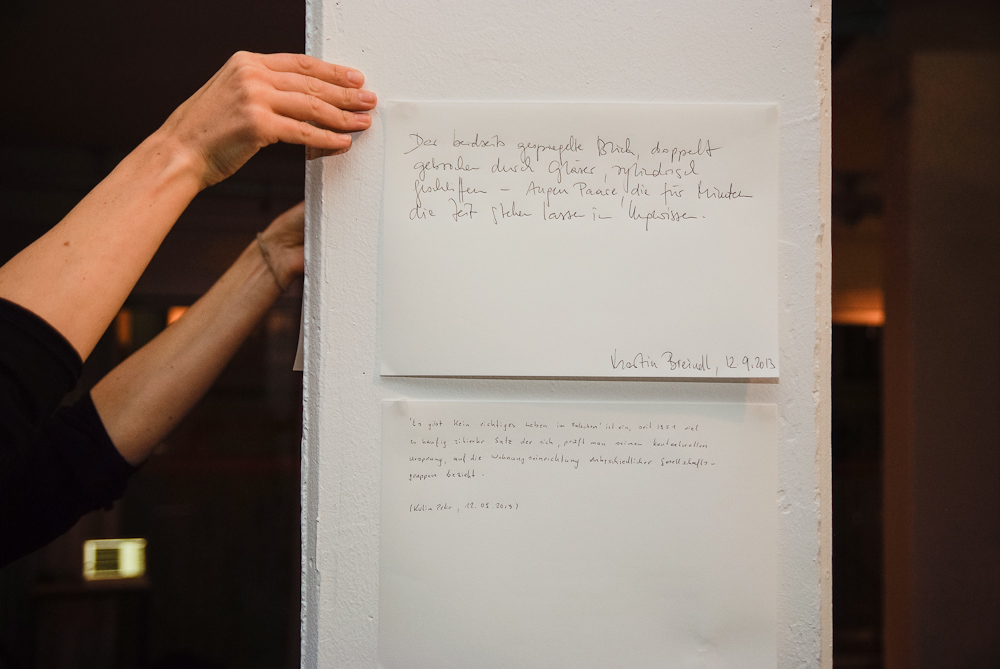 Der beidseits gespiegelte Blick, doppelt
gebrochen durch Gläser, zylindrisch
geschliffen – Augen Paare, die für Minuten
die Zeit stehen lassen im Ungewissen.
Martin Breindl, 12.9.2013
"Es gibt kein richtiges Leben im Falschen" ist ein, seit 1951 viel
zu häufig zitierter Satz der sich, prüft man seinen kontextuellen
Ursprung, auf die Wohnungseinrichtung unterschiedlicher Gesellschafts-
gruppen bezieht.
(Katin , 12.09.2013)